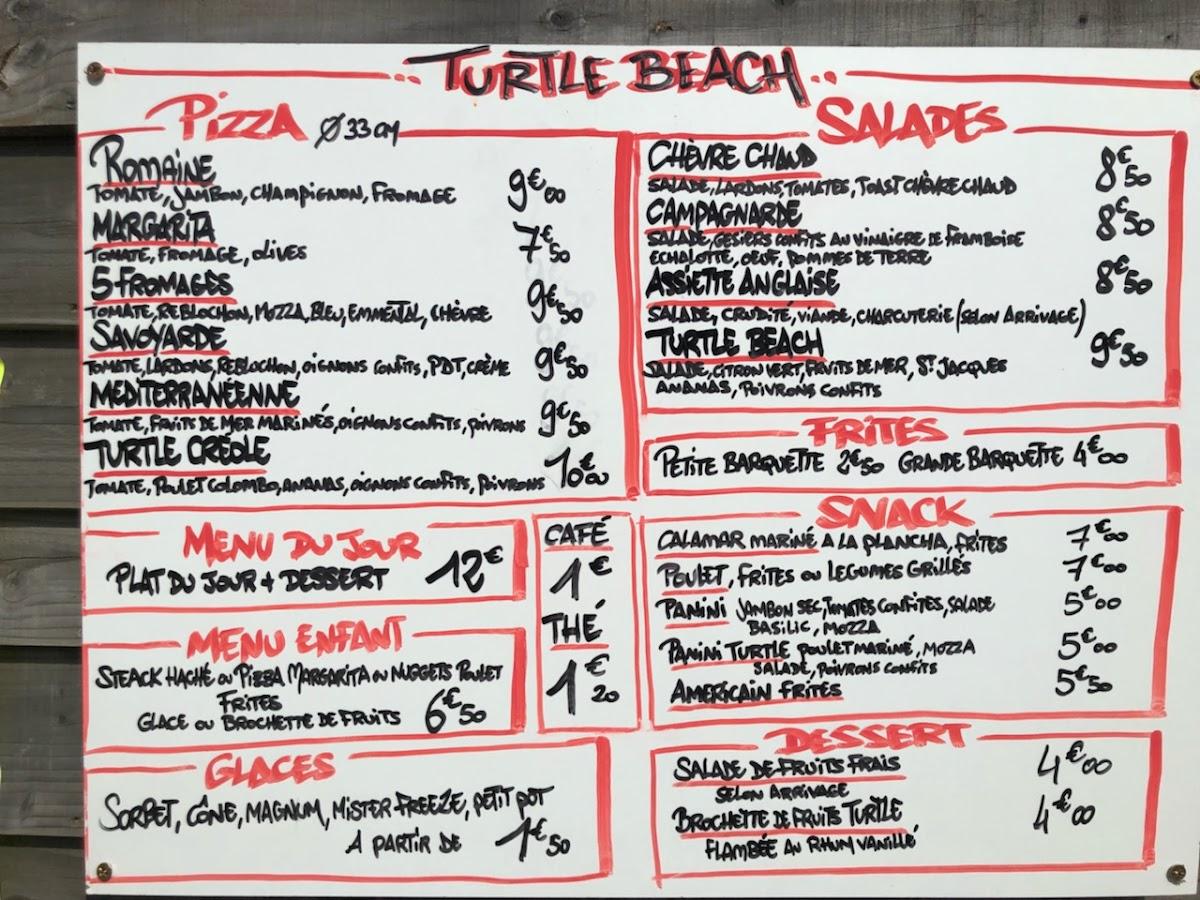 TURTLE BEACH
PIZZA Ø 33 CM
ROMAINE
TOMATE, JAMBON, CHAMPIGNON, FROMAGE 9€00
MARGARITA
TOMATE, FROMAGE, OLIVES 7€50
5 FROMAGES
TOMATE, REBLOCHON, MOZZA, BLEU, EMMENTAL, CHÈVRE 9€50
SAVOYARDE
TOMATE, LARDONS, REBLOCHON, OIGNONS CONFITS, PDT, CRÈME 9€50
MEDITERRANÉENNE
TOMATE, FRUITS DE MER MARINÉS, OIGNONS CONFITS, POIVRONS 9€50
TURTLE CRÉOLE
TOMATE, POULET COLOMBO, ANANAS, OIGNONS CONFITS, POIVRONS 10€00
MENU DU JOUR
PLAT DU JOUR + DESSERT 12€
MENU ENFANT
STEACK HACHÉ OU PIZZA MARGARITA OU NUGGETS POULET
FRITES
GLACE OU BROCHETTE DE FRUITS 6€50
CAFÉ
1€
THÉ
1€20
GLACES
SORBET, CÔNE, MAGNUM, MISTER FREEZE, PETIT POT
A PARTIR DE 1€50
SALADES
CHÈVRE CHAUD 8€50
SALADE, LARDONS, TOMATES, TOAST CHÈVRE CHAUD
CAMPAGNARDE 8€50
SALADE, GESIERS CONFITS AU VINAIGRE DE FRAMBOISE
ECHALOTTE, OEUF, POMMES DE TERRE
ASSIETTE ANGLAISE 8€50
SALADE, CRUDITÉ, VIANDE, CHARCUTERIE (SELON ARRIVAGE)
TURTLE BEACH 9€50
SALADE, CITRON VERT, FRUITS DE MER, ST JACQUES
ANANAS, POIVRONS CONFITS
FRITES
PETITE BARQUETTE 2€50 GRANDE BARQUETTE 4€00
SNACK
CALAMAR MARINÉ A LA PLANCHA, FRITES 7€00
POULET, FRITES OU LEGUMES GRILLÉS 7€00
PANINI JAMBON SEC, TOMATES CONFITES, SALADE 5€00
BASILIC, MOZZA
PANINI TURTLE POULET MARINÉ, MOZZA 5€00
SALADE, POIVRONS CONFITS
AMERICAIN FRITES 5€50
DESSERT
SALADE DE FRUITS FRAIS 4€00
SELON ARRIVAGE
BROCHETTE DE FRUITS TURTLE 4€00
FLAMBÉE AU RHUM VANILLÉ